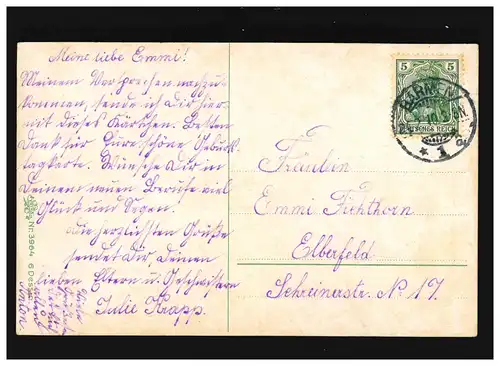 Meine liebe Emmi!
Meinem Versprechen nachzu-
kommen, sende ich Dir hier-
mit dieses Kärtchen. Besten
Dank für Eure schöne Geburts-
tagkarte. Wünsche Dir in
Deinem neuen Berufe viel
Glück und Segen.
Die herzlichsten Grüße
sendet Dir, Deinen
lieben Eltern u. Geschwistern
Julie Krapp.
Nr. 3964 6 Dessins
5 5
DEUTSCHES REICH
BARMEN
* 1
Fräulein
Emmi Fichthorn
Elberfeld
Schreinerstr. No 17.